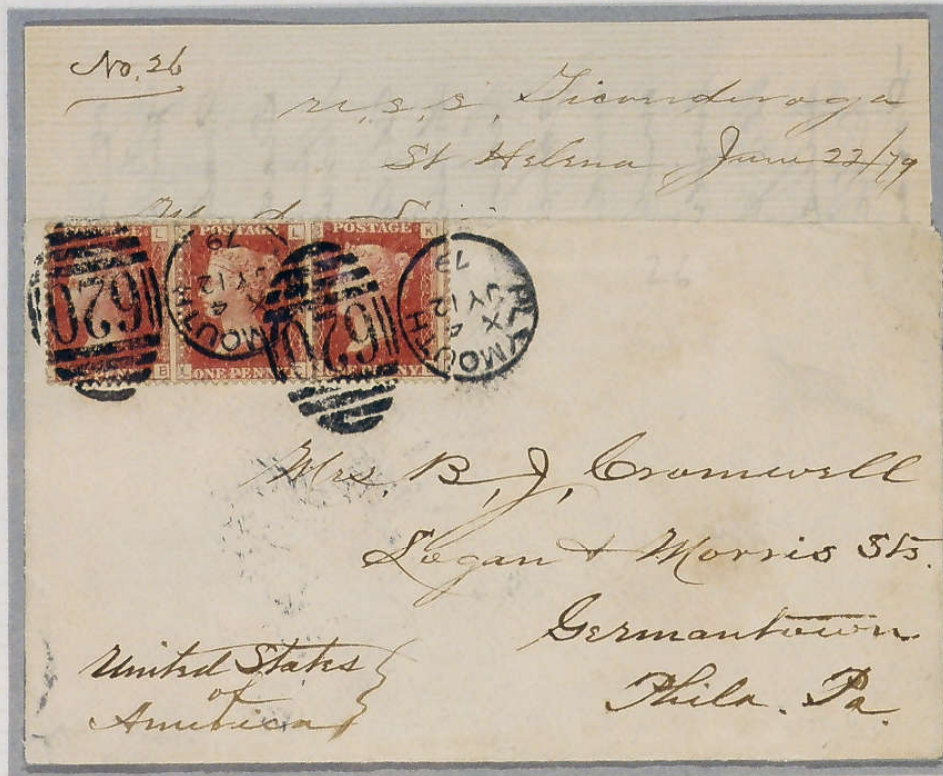 No. 26
U.S.S. Ticonderoga
St Helena June 22/79
26
L POSTAGE L POSTAGE K
620 PLYMOUTH X 4 JY 12 79 620 PLYMOUTH X 4 JY 12 79
B L ONE PENNY
Mrs. B. J. Cromwell
Logan & Morris Sts.
Germantown
Phila. Pa.
United States
of
America